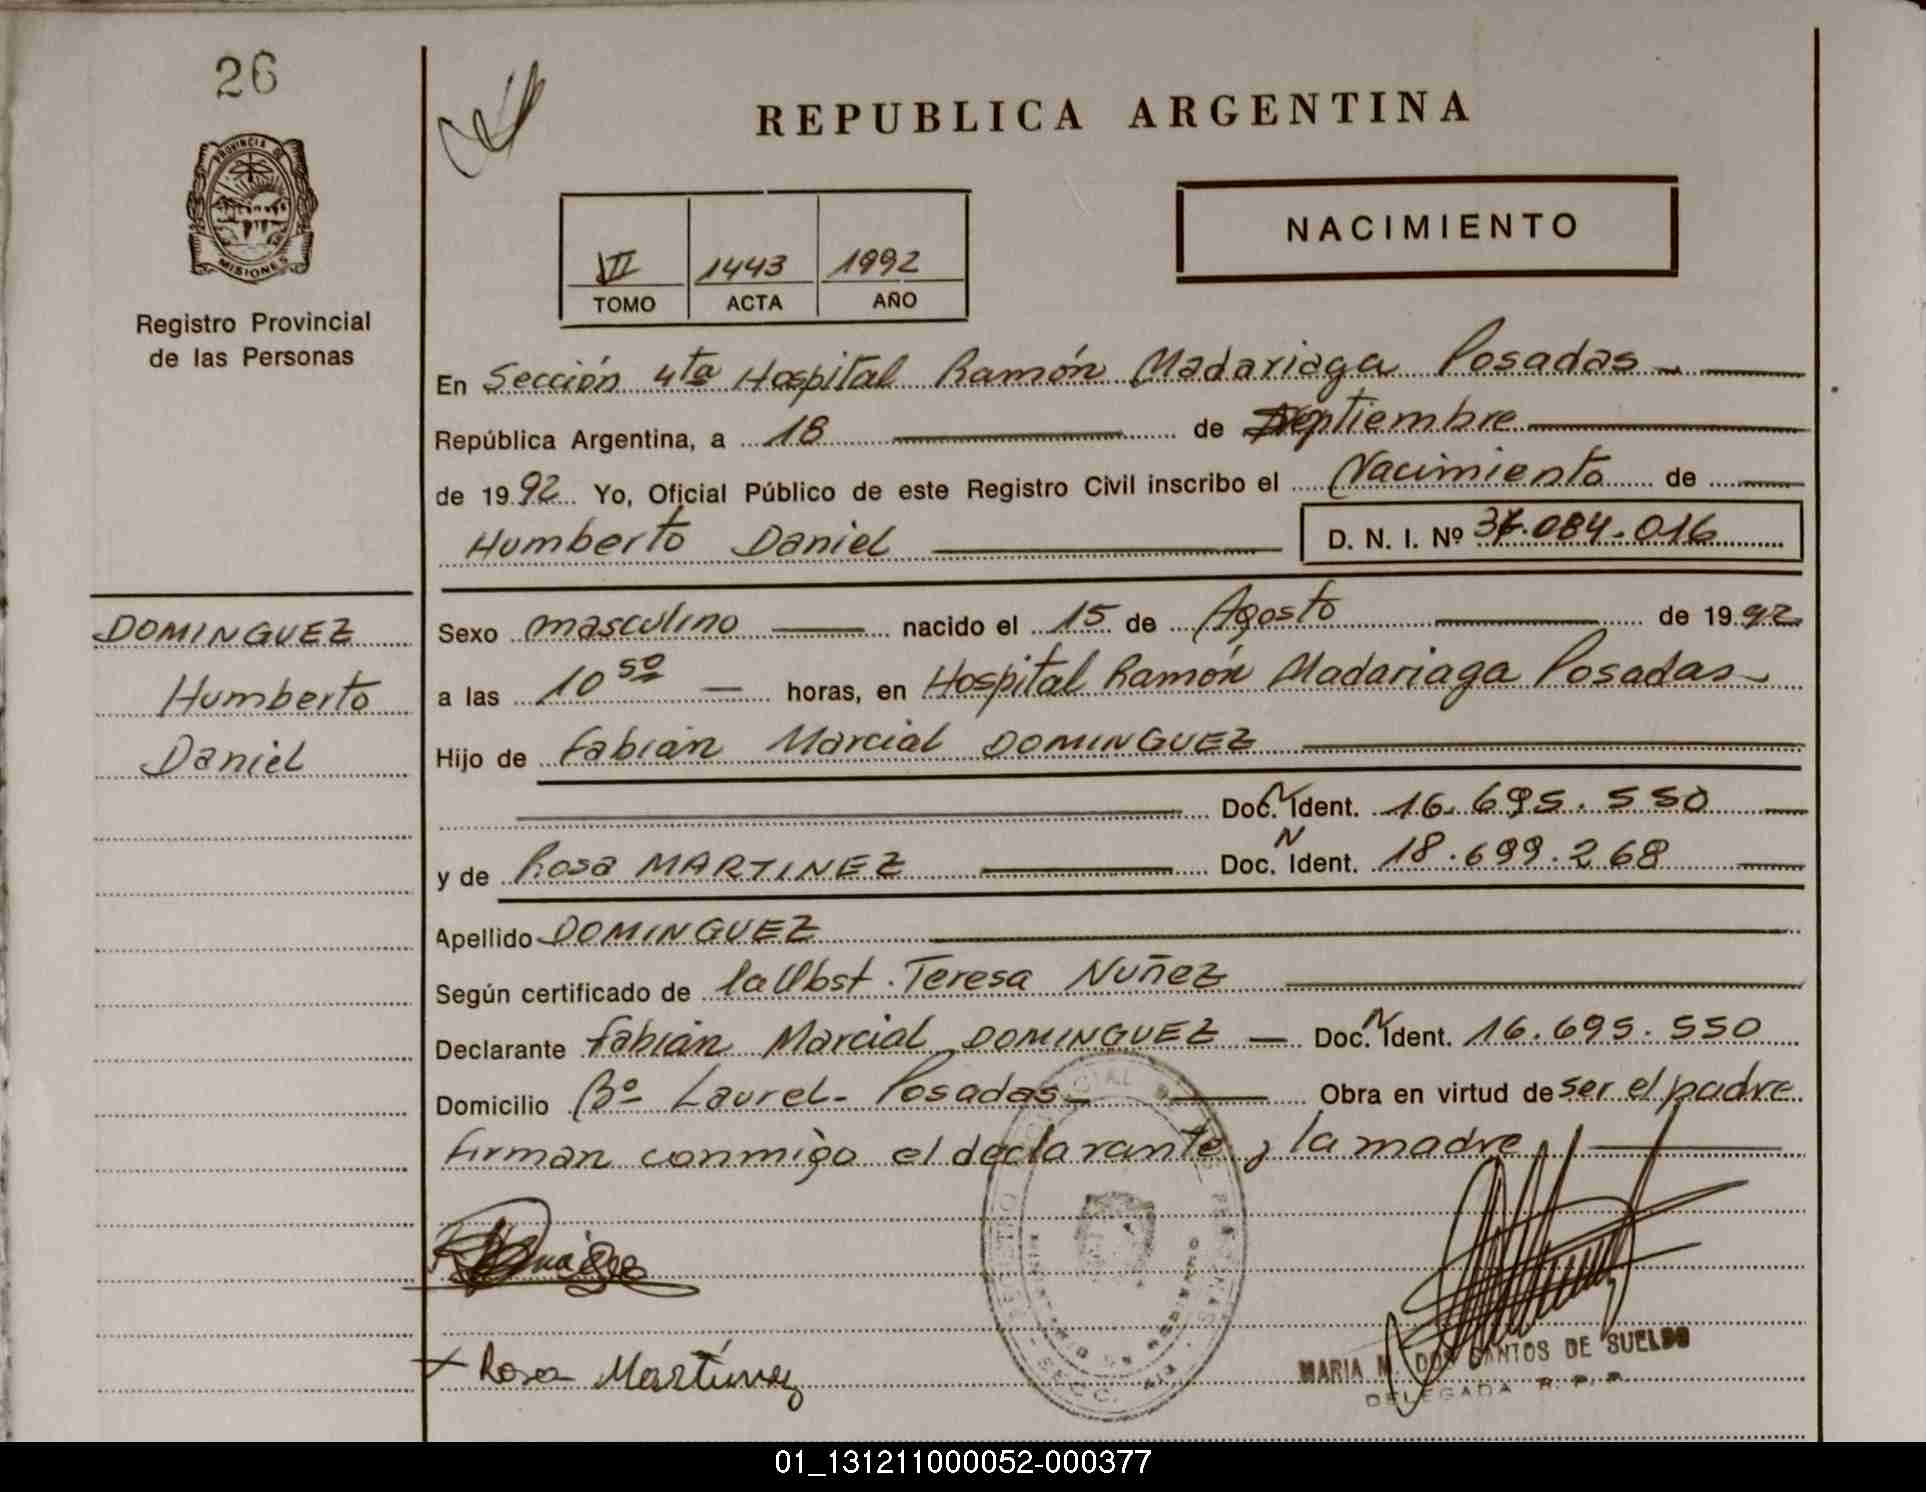 26
PROVINCIA DE
MISIONES
Registro Provincial
de las Personas
REPUBLICA ARGENTINA
NACIMIENTO
VII 1443 1992
TOMO ACTA AÑO
En Sección 4ta Hospital Ramón Madariaga Posadas
República Argentina, a 18 de Septiembre
de 1992 Yo, Oficial Público de este Registro Civil inscribo el Nacimiento de
Humberto Daniel D. N. I. Nº 37.084.016
DOMINGUEZ
Humberto
Daniel
Sexo masculino nacido el 15 de Agosto de 1992
a las 10 50 horas, en Hospital Ramón Madariaga Posadas
Hijo de Fabián Marcial DOMINGUEZ
Doc. N Ident. 16.695.550
y de Rosa MARTINEZ Doc. N Ident. 18.699.268
Apellido DOMINGUEZ
Según certificado de la Obst. Teresa Nuñez
Declarante Fabián Marcial DOMINGUEZ Doc. N Ident. 16.695.550
Domicilio Bº Laurel - Posadas Obra en virtud de ser el padre
firman conmigo el declarante y la madre
Rosa Martinez
MARIA M. DOS SANTOS DE SUELDO
DELEGADA R. P. P.
01_131211000052-000377